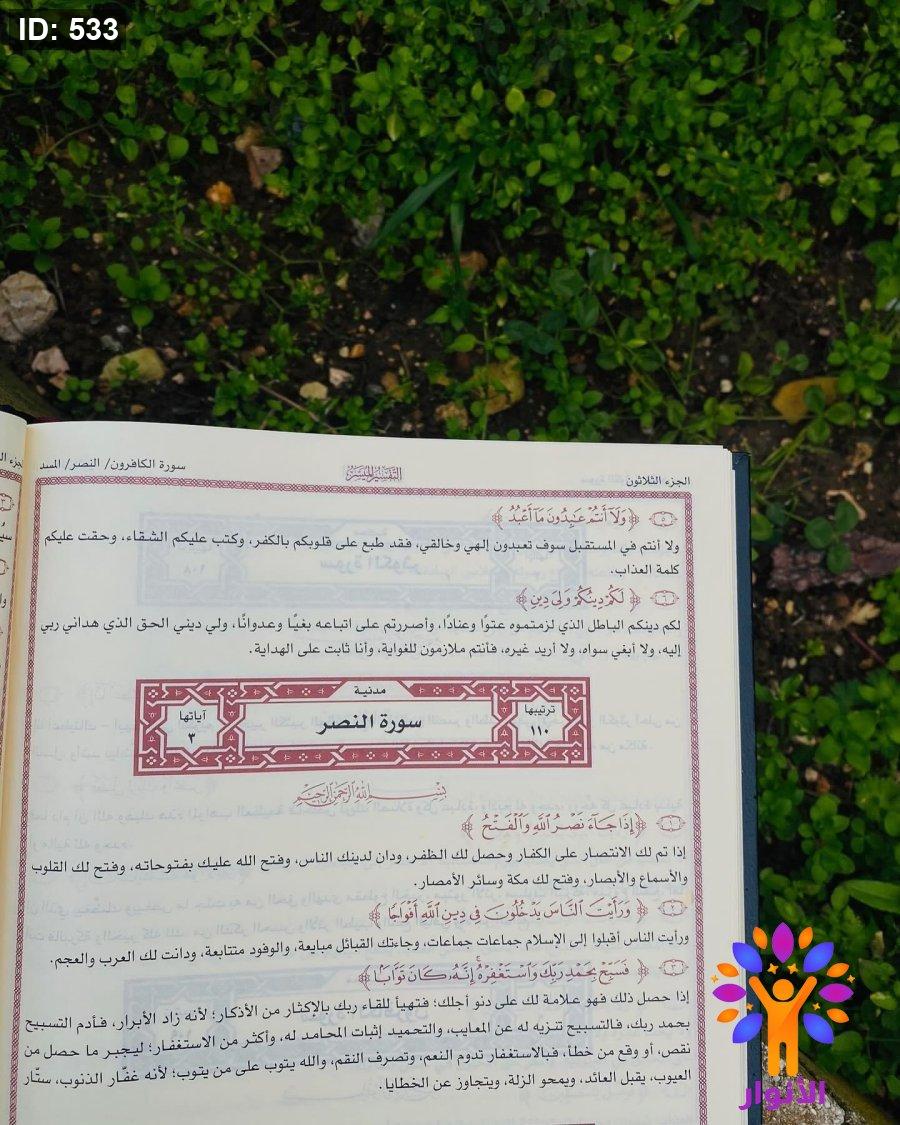 ID: 533
سورة الكافرون/ النصر/ المسد
التفسير الميسر
الجزء الثلاثون
﴿وَلَا أَنتُمْ عَٰبِدُونَ مَا أَعْبُدُ﴾ ٥
ولا أنتم في المستقبل سوف تعبدون إلهي وخالقي، فقد طبع على قلوبكم بالكفر، وكتب عليكم الشقاء، وحقت عليكم
كلمة العذاب.
﴿لَكُمْ دِينُكُمْ وَلِيَ دِينِ﴾ ٦
لكم دينكم الباطل الذي لزمتموه عتوًا وعنادًا، وأصررتم على اتباعه بغيًا وعدوانًا، ولي ديني الحق الذي هداني ربي
إليه، ولا أبغي سواه، ولا أريد غيره، فأنتم ملازمون للغواية، وأنا ثابت على الهداية.
مدنية
ترتيبها
١١٠
سورة النصر
آياتها
٣
بِسْمِ اللَّهِ الرَّحْمَٰنِ الرَّحِيمِ
١ ﴿إِذَا جَاءَ نَصْرُ اللَّهِ وَالْفَتْحُ﴾
إذا تم لك الانتصار على الكفار وحصل لك الظفر، ودان لدينك الناس، وفتح الله عليك بفتوحاته، وفتح لك القلوب
والأسماع والأبصار، وفتح لك مكة وسائر الأمصار.
٢ ﴿وَرَأَيْتَ النَّاسَ يَدْخُلُونَ فِي دِينِ اللَّهِ أَفْوَاجًا﴾
ورأيت الناس أقبلوا إلى الإسلام جماعات جماعات، وجاءتك القبائل مبايعة، والوفود متتابعة، ودانت لك العرب والعجم.
٣ ﴿فَسَبِّحْ بِحَمْدِ رَبِّكَ وَاسْتَغْفِرْهُ إِنَّهُ كَانَ تَوَّابًا﴾
إذا حصل ذلك فهو علامة لك على دنو أجلك؛ فتهيأ للقاء ربك بالإكثار من الأذكار؛ لأنه زاد الأبرار، فأدم التسبيح
بحمد ربك، فالتسبيح تنزيه له عن المعايب، والتحميد إثبات المحامد له، وأكثر من الاستغفار؛ ليجبر ما حصل من
نقص، أو وقع من خطأ، فبالاستغفار تدوم النعم، وتصرف النقم، والله يتوب على من يتوب؛ لأنه غفّار الذنوب، ستّار
العيوب، يقبل العائد، ويمحو الزلة، ويتجاوز عن الخطايا.
الأنوار